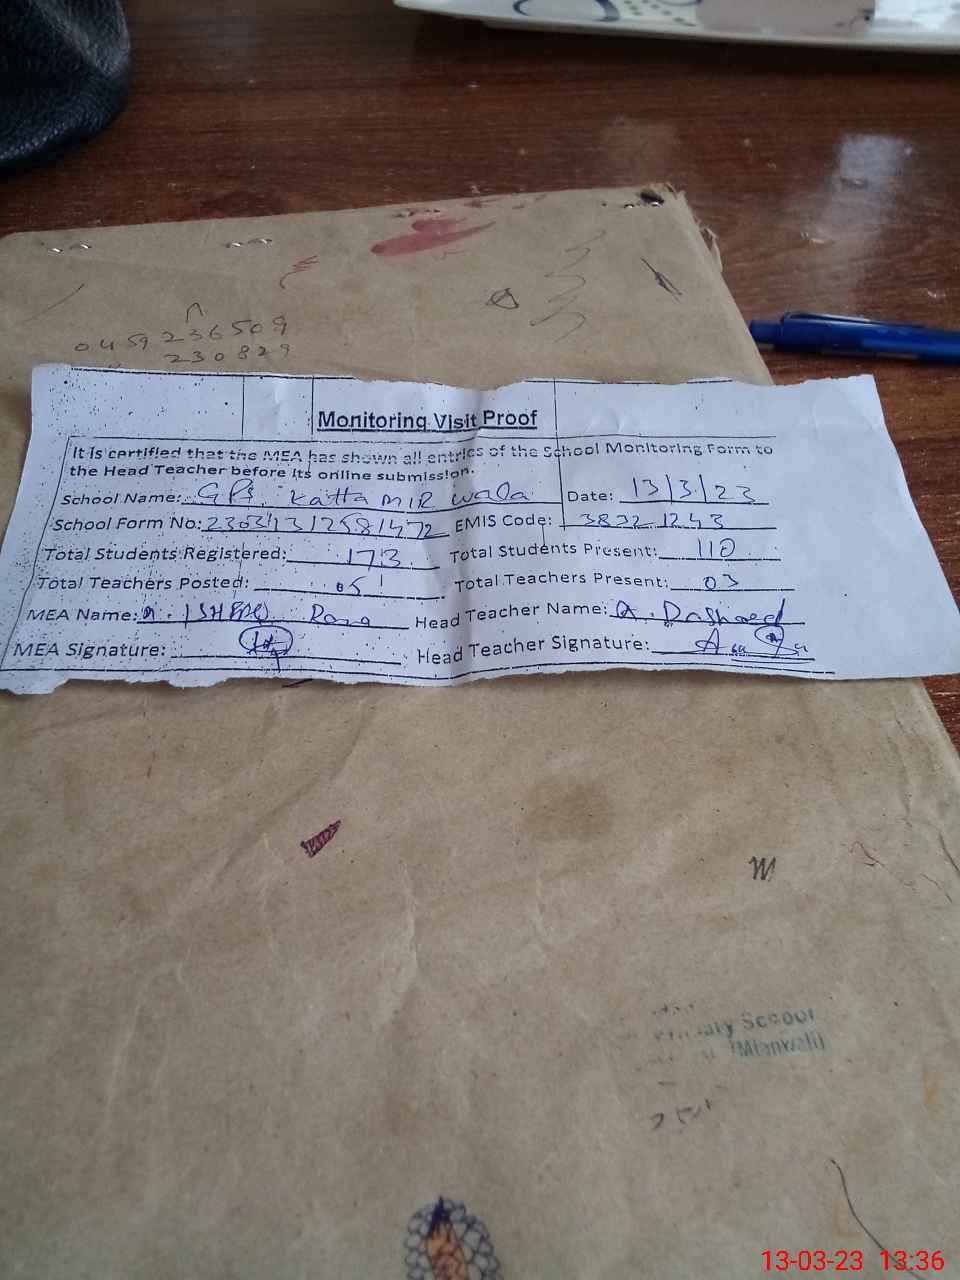 0459 236509
230829
Monitoring Visit Proof
It is certified that the MEA has shown all entries of the School Monitoring Form to
the Head Teacher before its online submission.
School Name: GPS Katta MIR Wala Date: 13/3/23
School Form No: EMIS Code: 38321243
Total Students Registered: 173 Total Students Present: 110
Total Teachers Posted: 05 Total Teachers Present: 03
MEA Name: Head Teacher Name: A. Rasheed
MEA Signature: Head Teacher Signature:
School
(Mianwali)
13-03-23 13:36